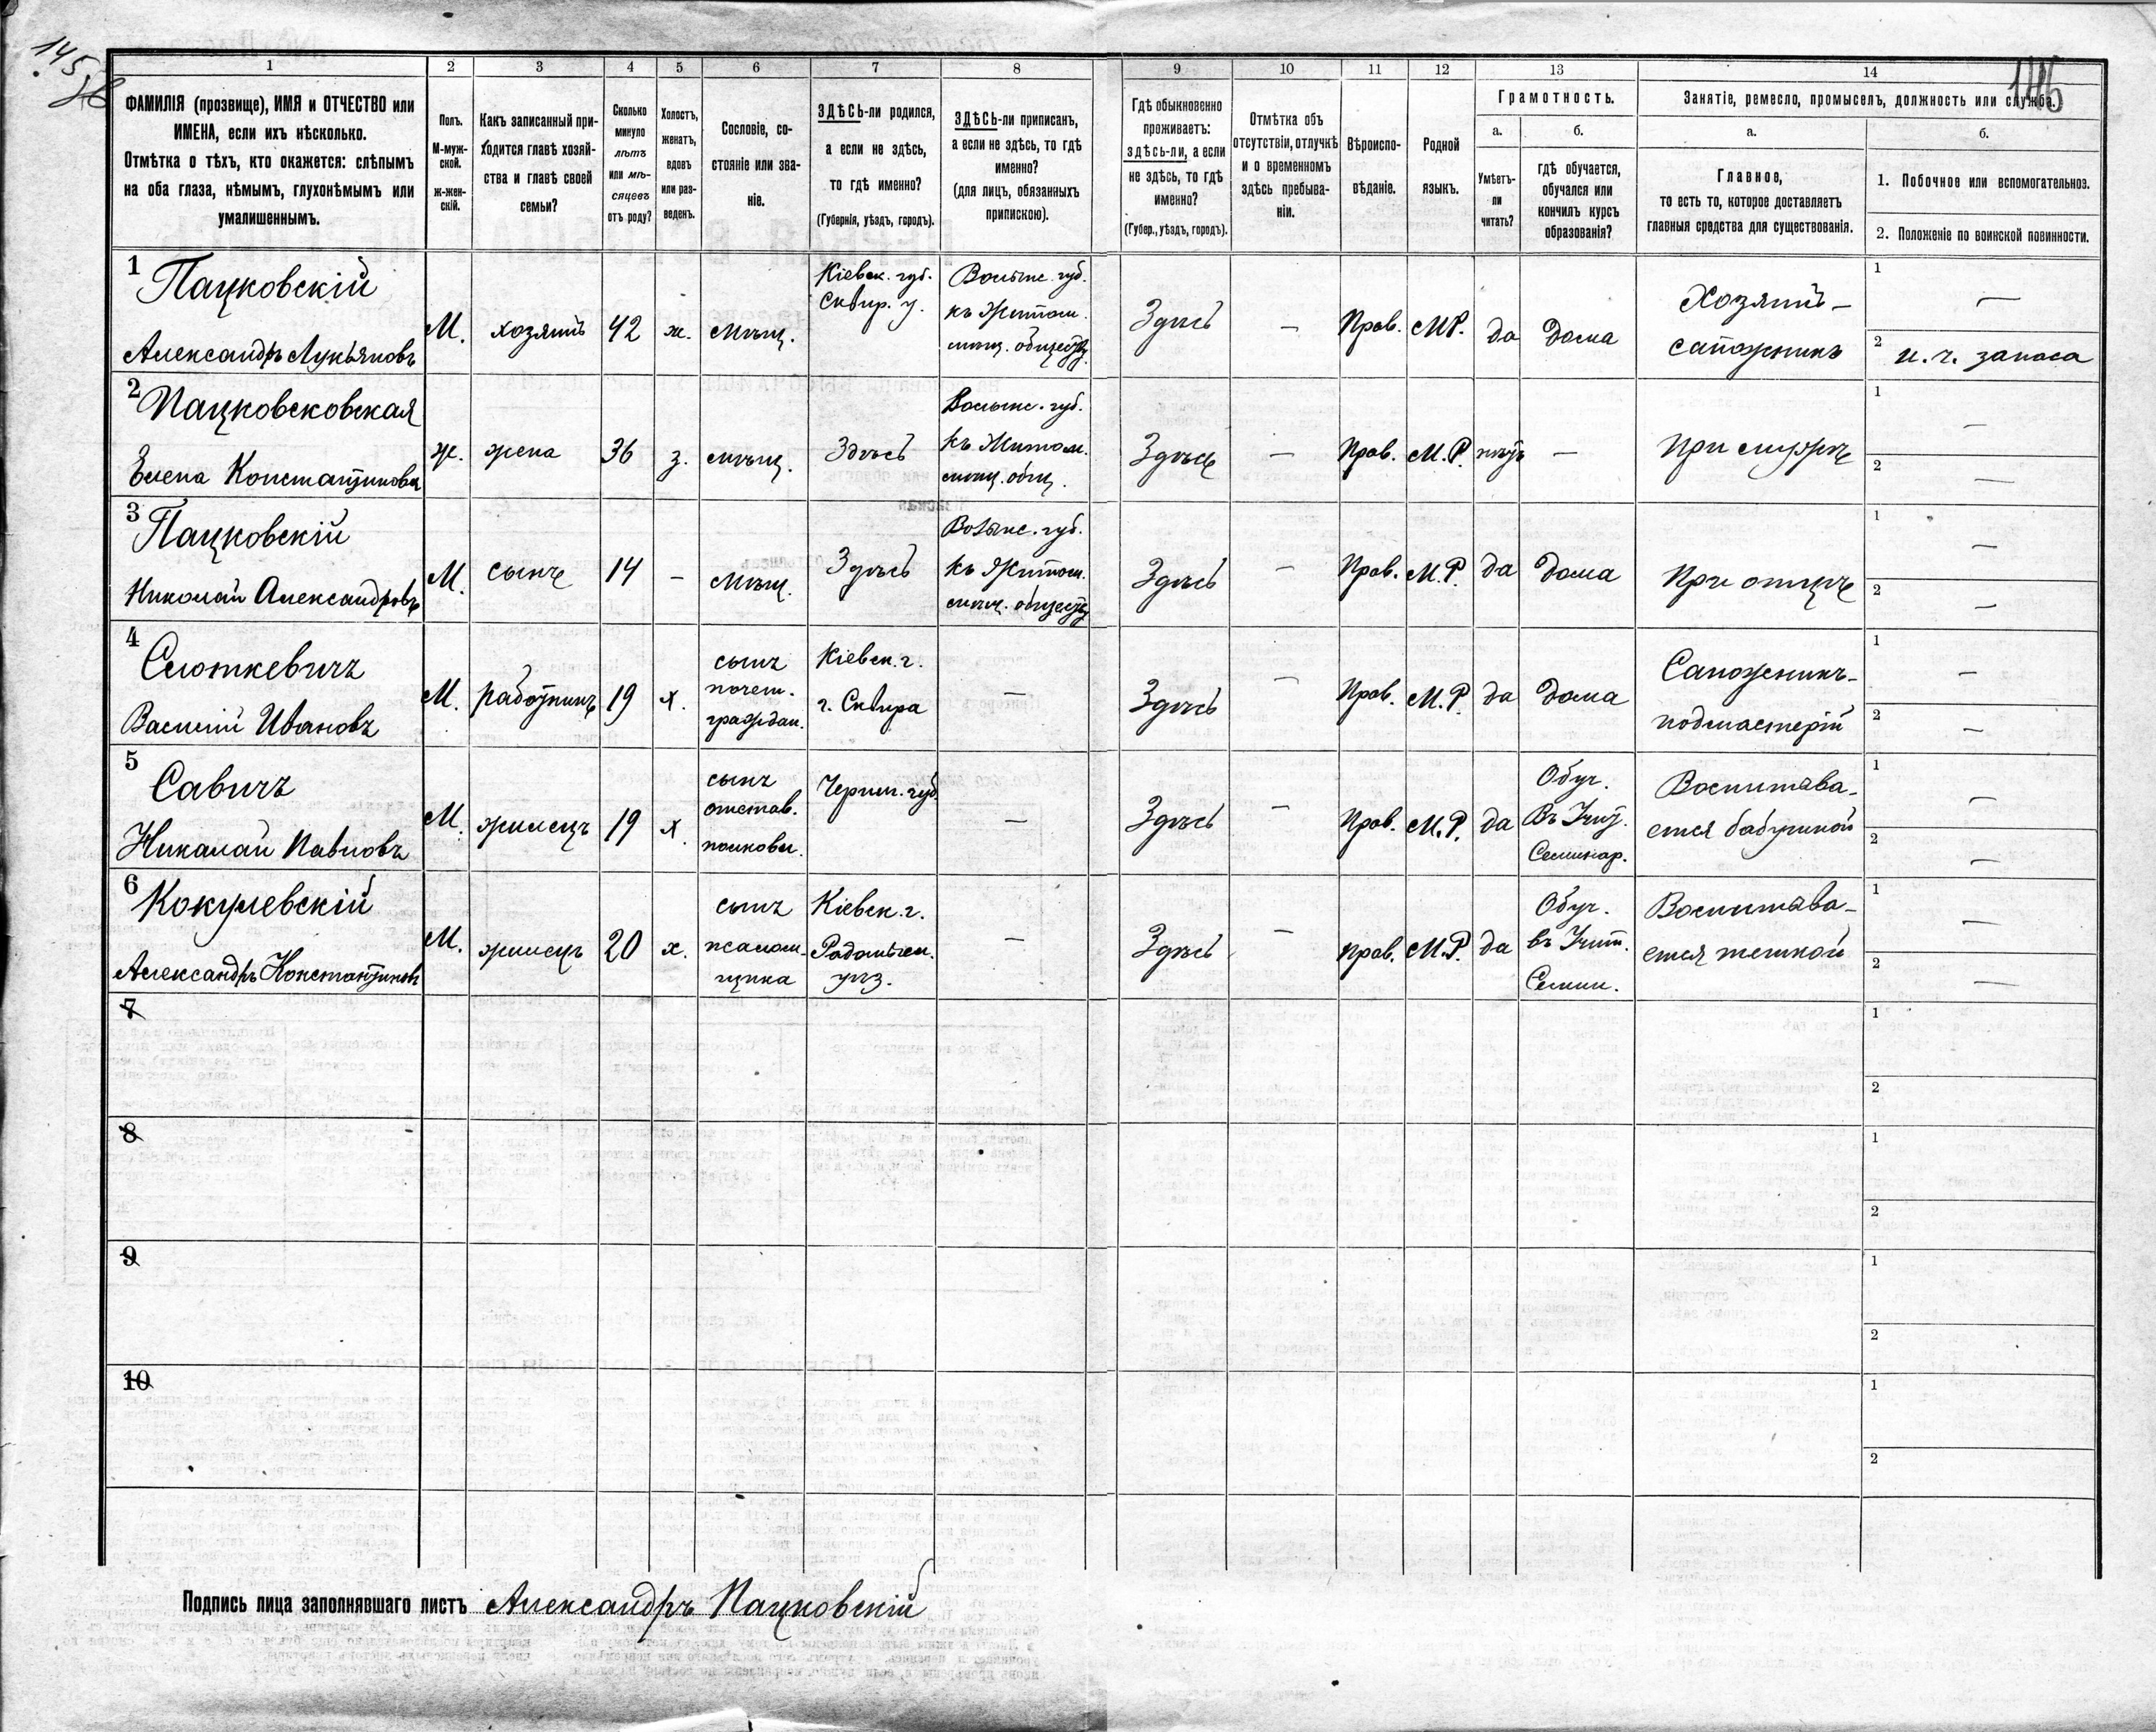 145 об
146
1 2 3 4 5 6 7 8 9 10 11 12 13 14
ФАМИЛІЯ (прозвище), ИМЯ и ОТЧЕСТВО или
ИМЕНА, если ихъ нѣсколько.
Отмѣтка о тѣхъ, кто окажется: слѣпымъ
на оба глаза, нѣмымъ, глухонѣмымъ или
умалишеннымъ.
Полъ.
М-муж-
ской.
ж-жен-
скій.
Какъ записанный при-
ходится главѣ хозяй-
ства и главѣ своей
семьи?
Сколько
минуло
лѣтъ
или мѣ-
сяцевъ
отъ роду?
Холостъ,
женатъ,
вдовъ
или раз-
веденъ.
Сословіе, со-
стояніе или зва-
ніе.
ЗДѢСЬ-ли родился,
а если не здѣсь,
то гдѣ именно?
(Губернія, уѣздъ, городъ).
ЗДѢСЬ-ли приписанъ,
а если не здѣсь, то гдѣ
именно?
(для лицъ, обязанныхъ
припискою).
Гдѣ обыкновенно
проживаетъ:
здѣсь-ли, а если
не здѣсь, то гдѣ
именно?
(Губер., уѣздъ, городъ).
Отмѣтка объ
отсутствіи, отлучкѣ
и о временномъ
здѣсь пребыва-
ніи.
Вѣроиспо-
вѣданіе.
Родной
языкъ.
Грамотность.
а.
Умѣетъ-
ли
читать?
б.
гдѣ обучается,
обучался или
кончилъ курсъ
образованія?
Занятіе, ремесло, промыселъ, должность или служба.
а.
Главное,
то есть то, которое доставляетъ
главныя средства для существованія.
б.
1. Побочное или вспомогательное.
2. Положеніе по воинской повинности.
1
Пацковскій
Александръ Лукьяновъ
М.
хозяинъ
42
ж.
мѣщ.
Кіевск. губ.
Сквир. у.
Волынс. губ.
къ Житом.
мѣщ. обществу
Здѣсь
—
Прав.
М.Р.
да
дома
Хозяинъ —
сапожникъ
1 —
2 н. ч. запаса
2
Пацковсковская
Елена Константинова
ж.
жена
36
з.
мѣщ.
Здѣсь
Волынс. губ.
къ Житом.
мѣщ. общ.
Здѣсь
—
Прав.
М.Р.
нѣтъ
—
При мужѣ
1 —
2 —
3
Пацковскій
Николай Александровъ
М.
сынъ
14
—
мѣщ.
Здѣсь
Волынс. губ.
къ Житом.
мѣщ. обществу
Здѣсь
—
Прав.
М.Р.
да
дома
При отцѣ
1 —
2 —
4
Слюткевичъ
Василій Ивановъ
М.
работникъ
19
х.
сынъ
почет.
граждан.
Кіевск. г.
г. Сквира
—
Здѣсь
—
Прав.
М.Р.
да
дома
Сапожникъ-
подмастерій
1 —
2 —
5
Савичъ
Николай Павловъ
М.
жилецъ
19
х.
сынъ
отстав.
полковн.
Черниг. губ.
—
Здѣсь
—
Прав.
М.Р.
да
Обуч.
Въ Учит.
Семинар.
Воспитыва-
ется бабушкой
1 —
2 —
6
Кокулевскій
Александръ Константиновъ
М.
жилецъ
20
х.
сынъ
псалом-
щика
Кіевск. г.
Радомысл.
уѣз.
—
Здѣсь
—
прав.
М.Р.
да
Обуч.
въ Учит.
Семин.
Воспитыва-
ется теткой
1 —
2 —
7
1
2
8
1
2
9
1
2
10
1
2
Подпись лица заполнявшаго листъ Александръ Пацковскій